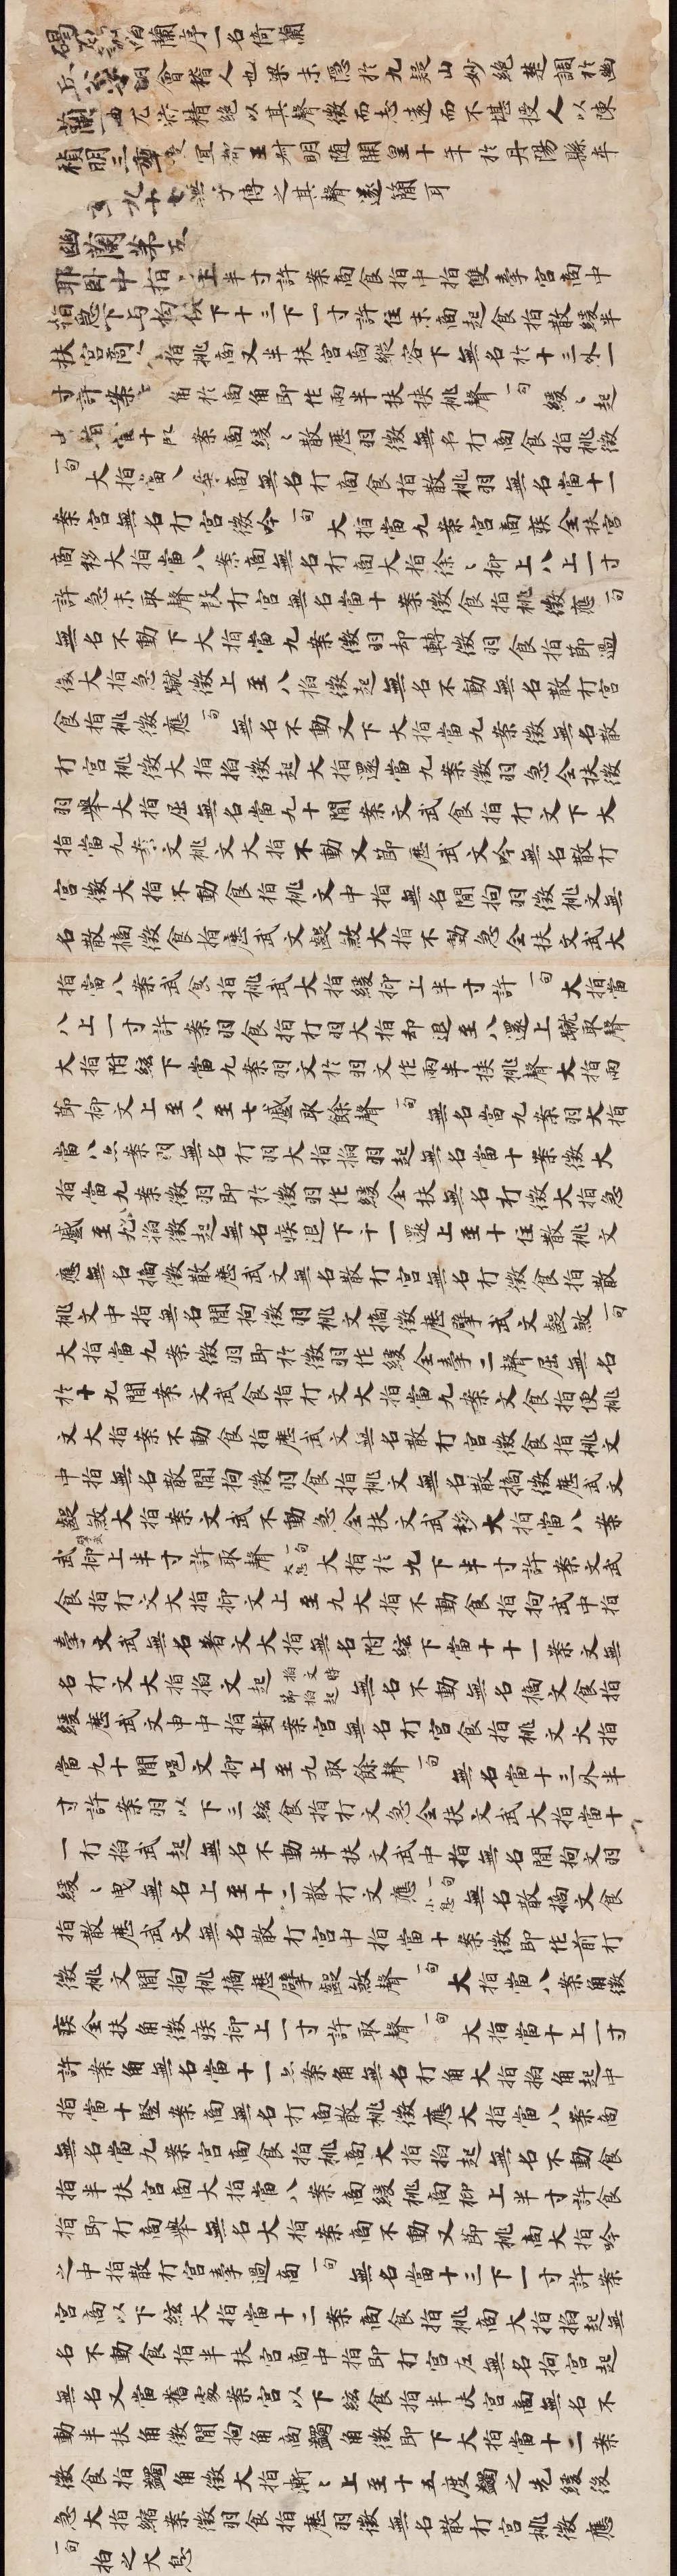 碣石調幽蘭序一名倚蘭
丘公字明會稽人也梁末隱於九疑山妙絕楚調於幽
蘭一曲尤特精絕以其聲微而志遠而不堪授人以陳
禎明三年授宜都王叔明隨開皇十年於丹陽縣卒
年九十七無子傳之其聲遂簡耳
幽蘭第五
耶臥中指十上半寸許案商食指中指雙牽宮商中
指急下与拘俱下十三下一寸許住末商起食指散緩半
扶宮商食指挑商又半扶宮商縱容下無名於十三外一
寸許案商角於商角即作兩半扶挾挑聲一句緩〻起
中指當十案商緩〻散歷羽徵無名打商食指挑徵
一句大指當八案商無名打商食指散挑羽無名當十一
案宮無名打宮徵吟一句大指當九案宮商疾全扶宮
商移大指當八案商無名打商大指徐〻抑上八上一寸
許急末取聲散打宮無名當十案徵食指挑徵應一句
無名不動下大指當九案徵羽却轉徵羽食指節過
後大指急蹴徵上至八掐徵起無名不動無名散打宮
食指挑徵應一句無名不動又下大指當九案徵無名散
打宮挑徵大指掐徵起大指還當九案徵羽急全扶徵
羽舉大指屈無名當九十間案文武食指打文下大
指當九案文挑文大指不動又節歷武文吟無名散打
宮徵大指不動食指挑文中指無名間拘羽徵挑文無
名散擿徵食指歷武文齪煞大指不動急全扶文武大
指當八案武食指挑武大指緩抑上半寸許一句大指當
八上一寸許案羽食指打羽大指却退至八還上蹴取聲
大指附絃下當九案羽文於羽文作兩半扶挑聲大指兩
節抑文上至八至七蹙取餘聲一句無名當九案羽大指
當八案羽無名打羽大指掐羽起無名當十案徵大
指當九案徵羽即於徵羽作緩全扶無名打徵大指急
蹙至八掐徵起無名疾退下十一還上至十住散挑文
應無名擿徵散歷武文無名散打宮無名打徵食指散
挑文中指無名間拘徵羽挑文擿徵歷擘武文齪煞一句
大指當九案徵羽即於徵羽作緩全牽二聲屈無名
於十九間案文武食指打文大指當九案文食指使挑
文大指案不動食指歷武文無名散打宮徵食指挑文
中指無名散間拘徵羽食指挑文無名散擿徵歷武文
齪煞大指案文武不動急全扶文武移大指當八案
武抑上半寸許取聲一句太息大指於九下半寸許案文武
食指打文大指抑文上至九大指不動食指拘武中指
牽文武無名著文大指無名附絃下當十十一案文無
名打文大指掐文起節掐起無名不動無名擿文食指
緩歷武文申中指對案宮無名打宮食指挑文大指
當九十間吧文抑上至九取餘聲一句無名當十三外半
寸許案羽以下三絃食指打文急全扶文武大指當十
一打掐武起無名不動半扶文武中指無名間拘文羽
緩〻曳無名上至十二散打文應一句小息無名散擿文食
指散歷武文無名散打宮中指當十案徵即作前打
徵挑文間拘挑擿歷擘齪煞聲一句大指當八案角徵
疾全扶角徵疾抑上一寸許取聲一句大指當十上一寸
許案角無名當十一案角無名打角大指掐角起中
指當十竪案商無名打商散挑徵應大指當八案商
無名當九案宮商食指挑商大指掐起無名不動食
指半扶宮商大指當八案商緩挑商抑上半寸許食
指即打商舉無名大指案商不動又節挑商大指吟
之中指散打宮牽過商一句無名當十三下一寸許案
宮商以下絃大指當十二案商食指挑商大指掐起無
名不動食指半扶宮商中指即打宮右無名拘宮起
無名又當舊處案宮以下絃食指半扶宮商無名不
動半扶角徵間拘角商蠲角徵即下大指當十二案
徵食指蠲角徵大指漸〻上至十五度蠲之先緩後
急大指縮案徵羽食指歷羽徵無名散打宮挑徵應
一句拍之大息